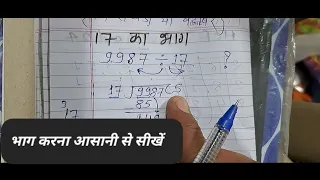 17 का भाग
9987 ÷ 17 ?
17 ⟌9987(5
85
भाग करना आसानी से सीखें
17